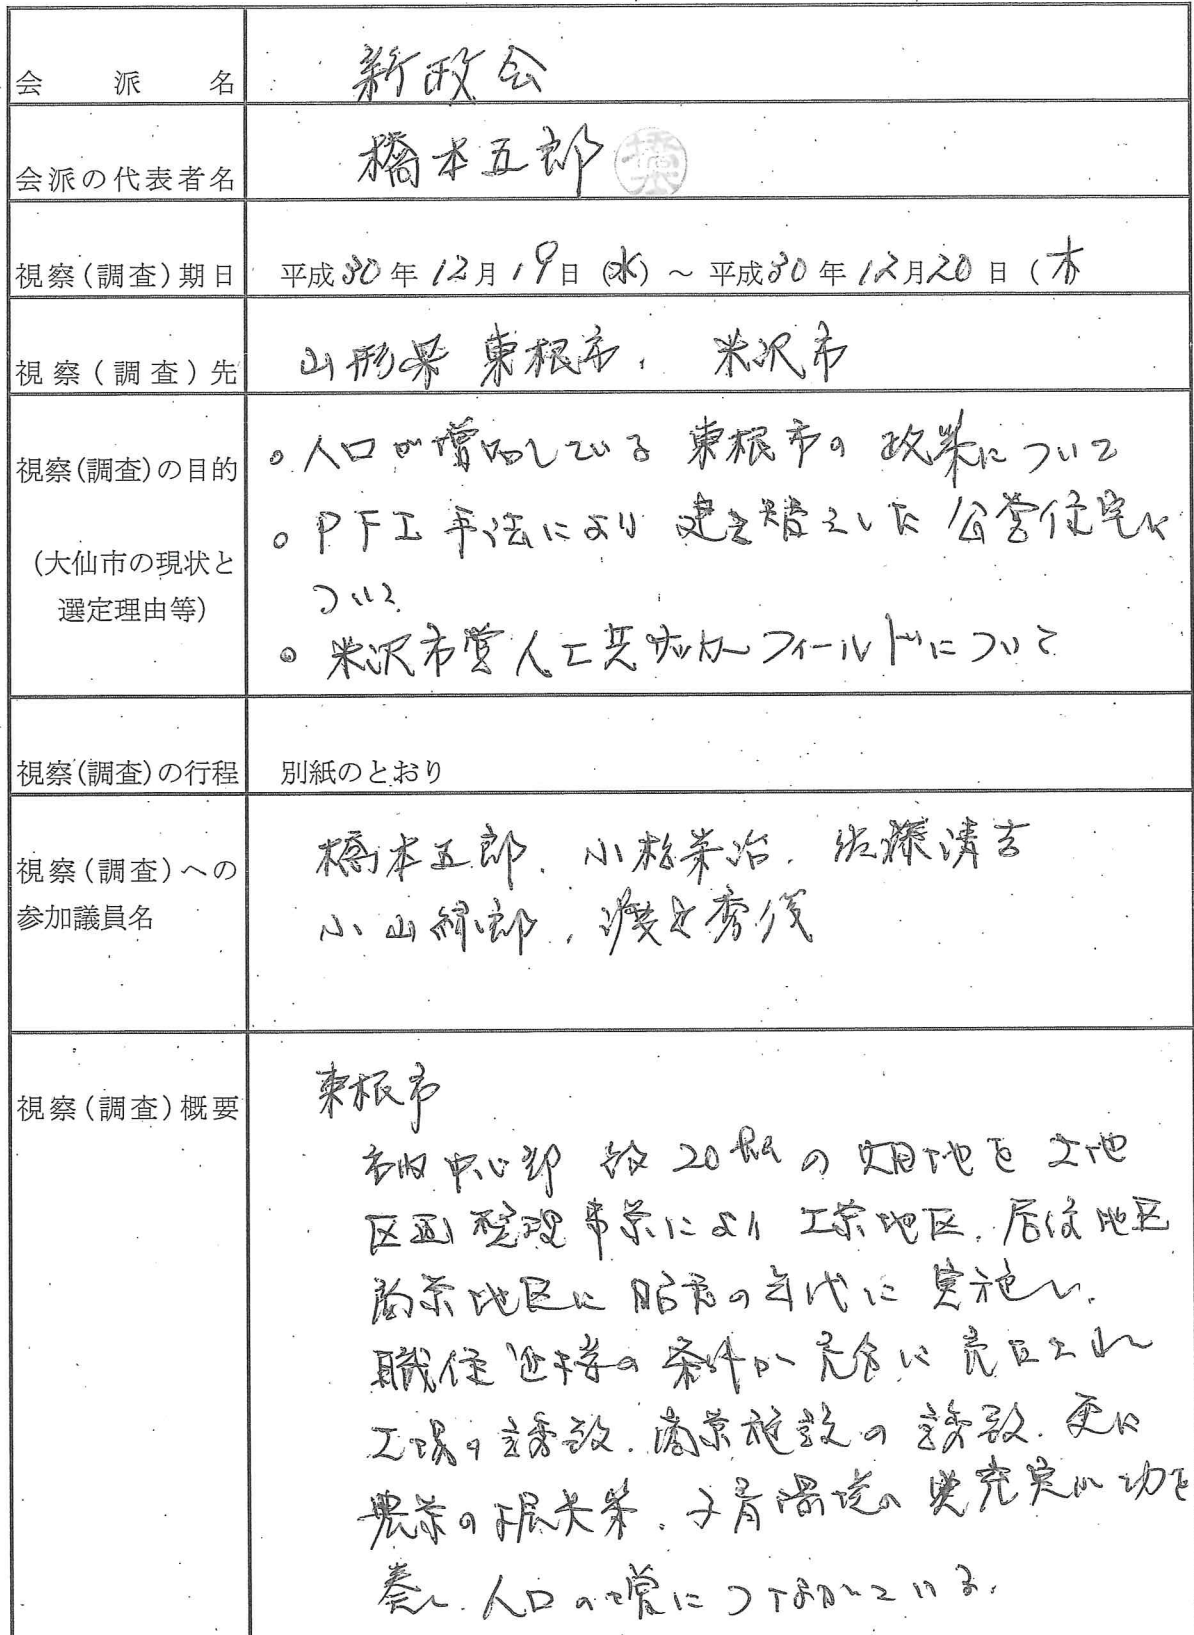 会派名 新政会
会派の代表者名 橋本五郎 橋本
視察(調査)期日 平成30年12月19日(水)～平成30年12月20日(木
視察(調査)先 山形県 東根市、米沢市
視察(調査)の目的
(大仙市の現状と
選定理由等)
○人口が増加している東根市の政策について
○PFI手法により建き替えした公営住宅に
ついて
○米沢市営人工芝サッカーフィールドについて
視察(調査)の行程 別紙のとおり
視察(調査)への
参加議員名
橋本五郎、小松栄治、佐藤清吉
小山緑郎、渡辺秀俊
視察(調査)概要
東根市
市内中心部 約20haの 地を土地
区画整理事業により工業地区、居住地区
商業地区に昭和の年代に実施し、
職住近接の条件が完全に 
工場の誘致、商業施設の誘致、更に
農業の振興策、子育環境の 充実が功を
奏し、人口の増につながっている。